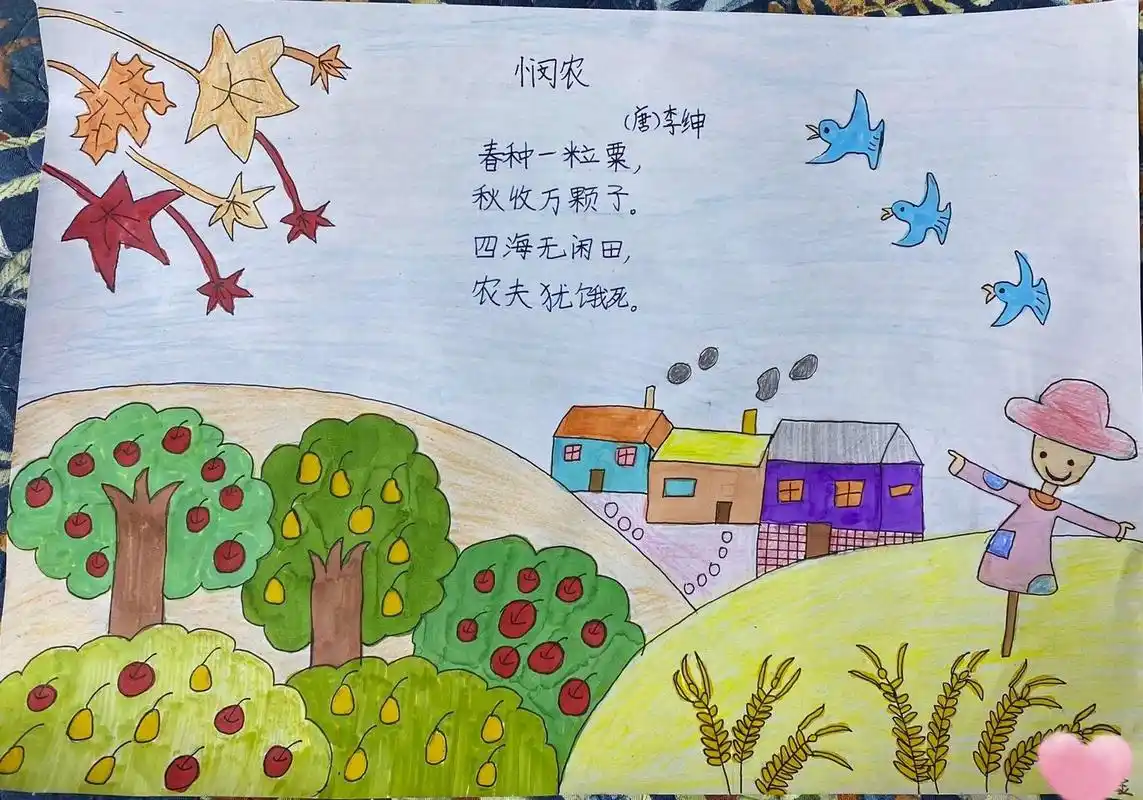 悯农
(唐)李绅
春种一粒粟，
秋收万颗子。
四海无闲田，
农夫犹饿死。